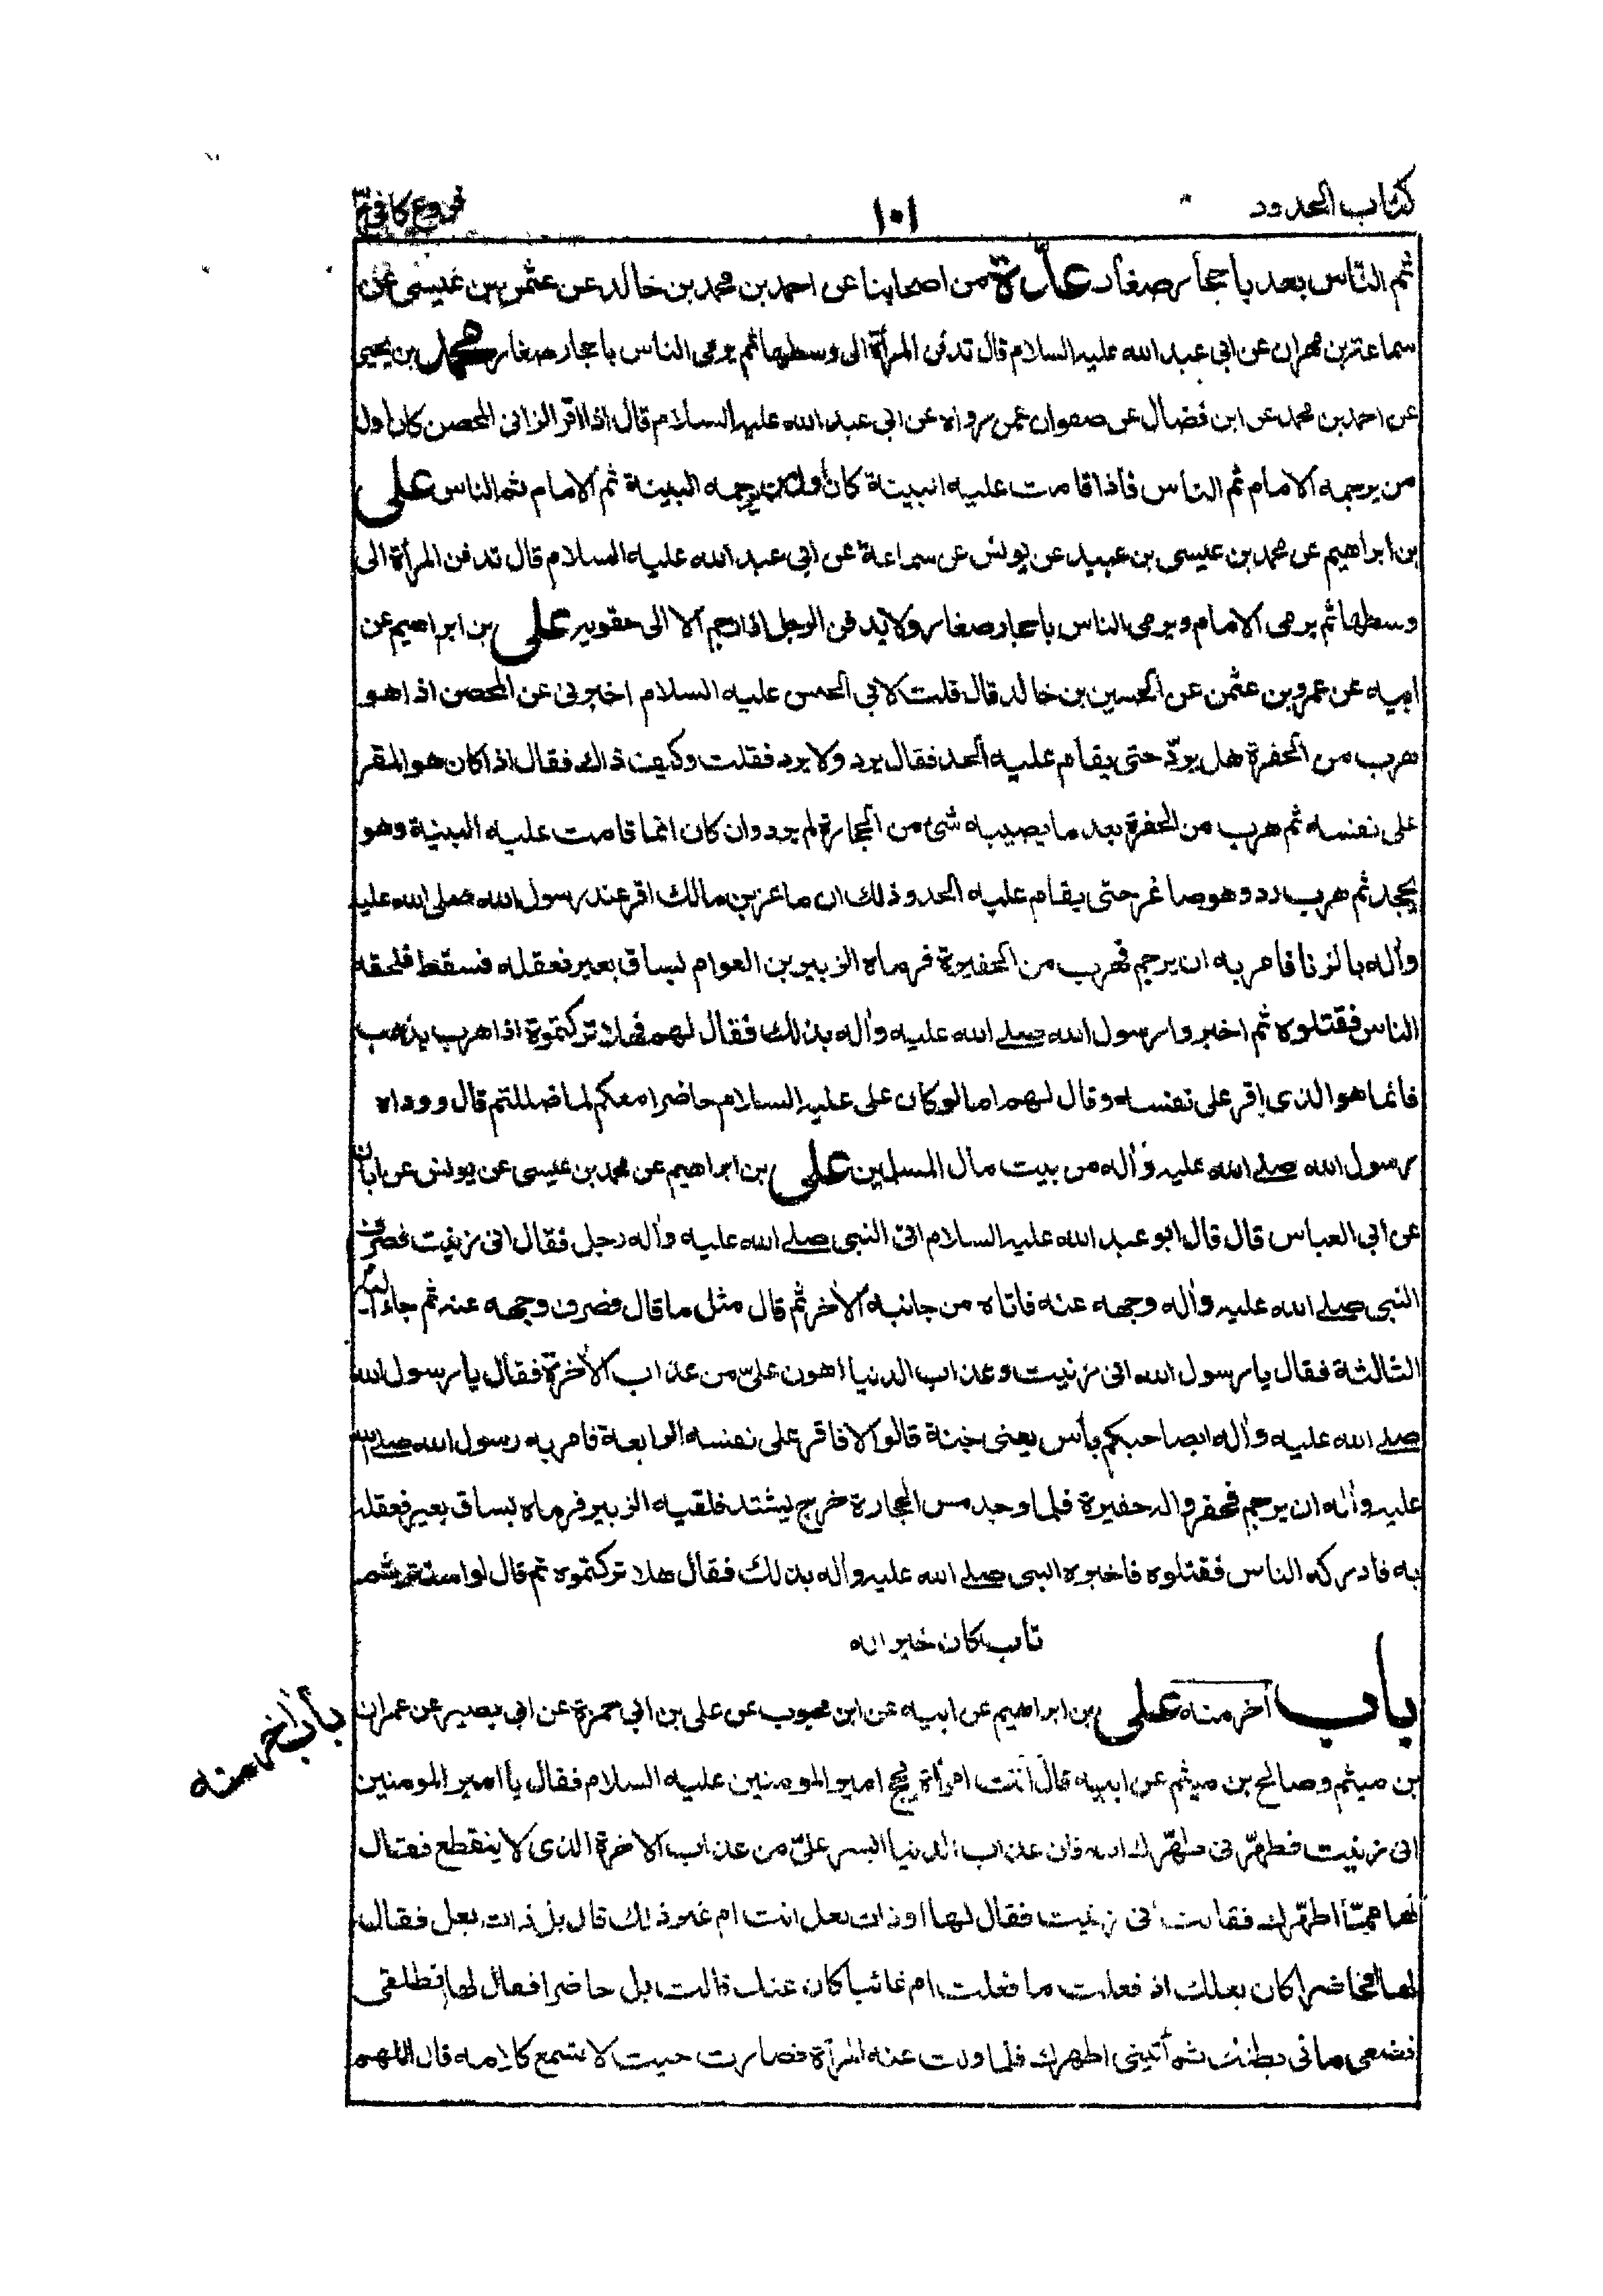 كتاب الحدود
١٠١
فروع كافي ج
ثم الناس بعد باحجار صغار عدة من اصحابنا عن احمد بن محمد بن خالد عن عثمن بن عيسى عن
سماعة بن مهران عن ابي عبد الله عليه السلام قال تدفن المرأة الى وسطها ثم يرمى الناس باحجار صغار محمد بن يحيى
عن احمد بن محمد عن ابن فضال عن صفوان عمن رواه عن ابي عبد الله عليه السلام قال اذا اقر الزانى المحصن كان اول
من يرجمه الامام ثم الناس فاذا قامت عليه البينة كان اول من يرجمه البينة ثم الامام ثم الناس على
بن ابراهيم عن محمد بن عيسى بن عبيد عن يونس عن سماعة عن ابي عبد الله عليه السلام قال تدفن المرأة الى
وسطها ثم يرمى الامام ويرمى الناس باحجار صغار ولا يدفن الرجل اذا رجم الا الى حقويه على بن ابراهيم عن
ابيه عن عمرو بن عثمن عن الحسين بن خالد قال قلت لابي الحسن عليه السلام اخبرنى عن المحصن اذا هو
هرب من الحفرة هل يردّ حتى يقام عليه الحد فقال يرد ولا يرد فقلت وكيف ذالك فقال اذا كان هو المقر
على نفسه ثم هرب من الحفرة بعد ما يصيبه شئ من الحجارة لم يرد وان كان انما قامت عليه البينة وهو
يجحد ثم هرب رد وهو صاغر حتى يقام عليه الحد وذلك ان ماعز بن مالك اقر عند رسول الله صلى الله عليه
وآله بالزنا فامر به ان يرجم فهرب من الحفيرة فرماه الزبير بن العوام بساق بعير فعقله فسقط فلحقه
الناس فقتلوه ثم اخبروا رسول الله صلے الله عليه وآله بذلك فقال لهم فهلا تركتموة اذا هرب يذهب
فانما هو الذى اقر على نفسه وقال لهم اما لو كان على عليه السلام حاضرا معكم لما ضللتم قال ووداه
رسول الله صلے الله عليه وآله من بيت مال المسلمين على بن ابراهيم عن محمد بن عيسى عن يونس عن ابان
عن ابي العباس قال قال ابو عبد الله عليه السلام اتى النبى صلے الله عليه وآله رجل فقال انى زنيت فصرف
النبى صلے الله عليه وآله وجهه عنه فاتاه من جانبه الآخر ثم قال مثل ما قال فصرف وجهه عنه ثم جاء اليه
الثالثة فقال يا رسول الله انى زنيت وعذاب الدنيا اهون علىّ من عذاب الآخرة فقال يا رسول الله
صلے الله عليه وآله ابصاحبكم بأس يعنى جنة قالوا لا فاقر على نفسه الرابعة فامر به رسول الله صلے الله
عليه وآله ان يرجم فحفروا له حفيرة فلما وجد مس الحجارة خرج يشتد فلقيه الزبير فرماه بساق بعير فعقله
به فادركه الناس فقتلوه فاخبروه النبى صلے الله عليه وآله بذلك فقال هلا تركتموه ثم قال لو استتر ثم
تاب كان خير اله
باب آخر منه على بن ابراهيم عن ابيه عن ابن محبوب عن على بن ابي حمزة عن ابي بصير عن عمران
باب آخر منه
بن ميثم وصالح بن ميثم عن ابيه قال اتت امرأة مجح امير المومنين عليه السلام فقال يا امير المومنين
انى زنيت فطهّرنى طهّرك الله فان عذاب الدنيا ايسر علىّ من عذاب الاخرة الذى لا ينقطع فقال
لها ممّا اطهّرك فقالت انى زنيت فقال لها او ذات بعل انت ام غير ذلك قال بل ذات بعل فقال
لها افحاضرا كان بعلك اذ فعلت ما فعلت ام غائبا كان عنك قالت بل حاضرا فقال لها انطلقى
فضعى ما فى بطنك ثم أتينى اطهرك فلما ولت عنه المرأة فصارت حيث لا تسمع كلامه قال اللهم